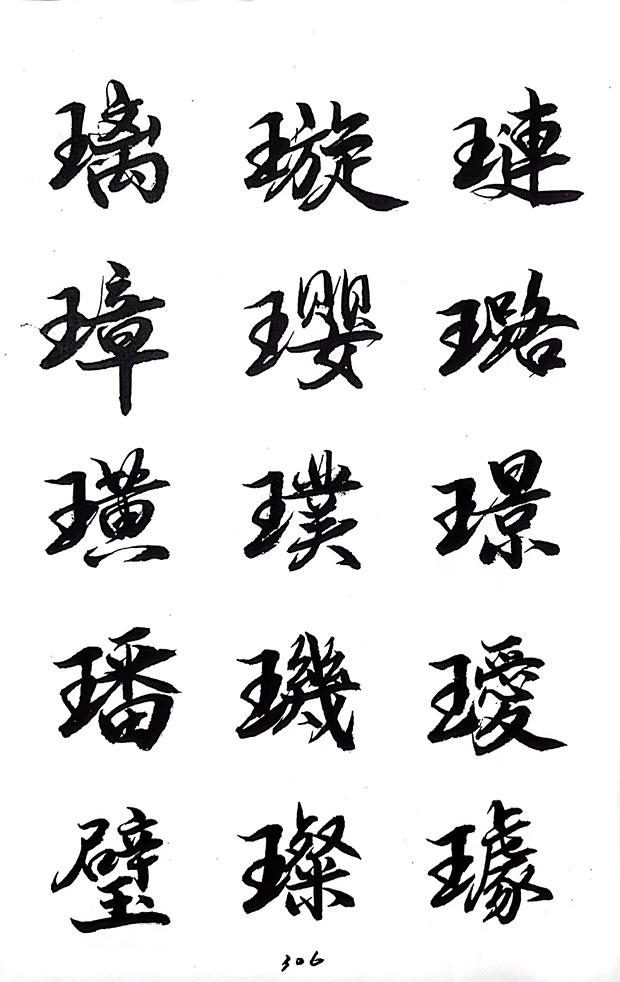 璃 璇 璉
璋 璎 璐
璜 璞 璟
璠 璣 璦
璧 璨 璩
306